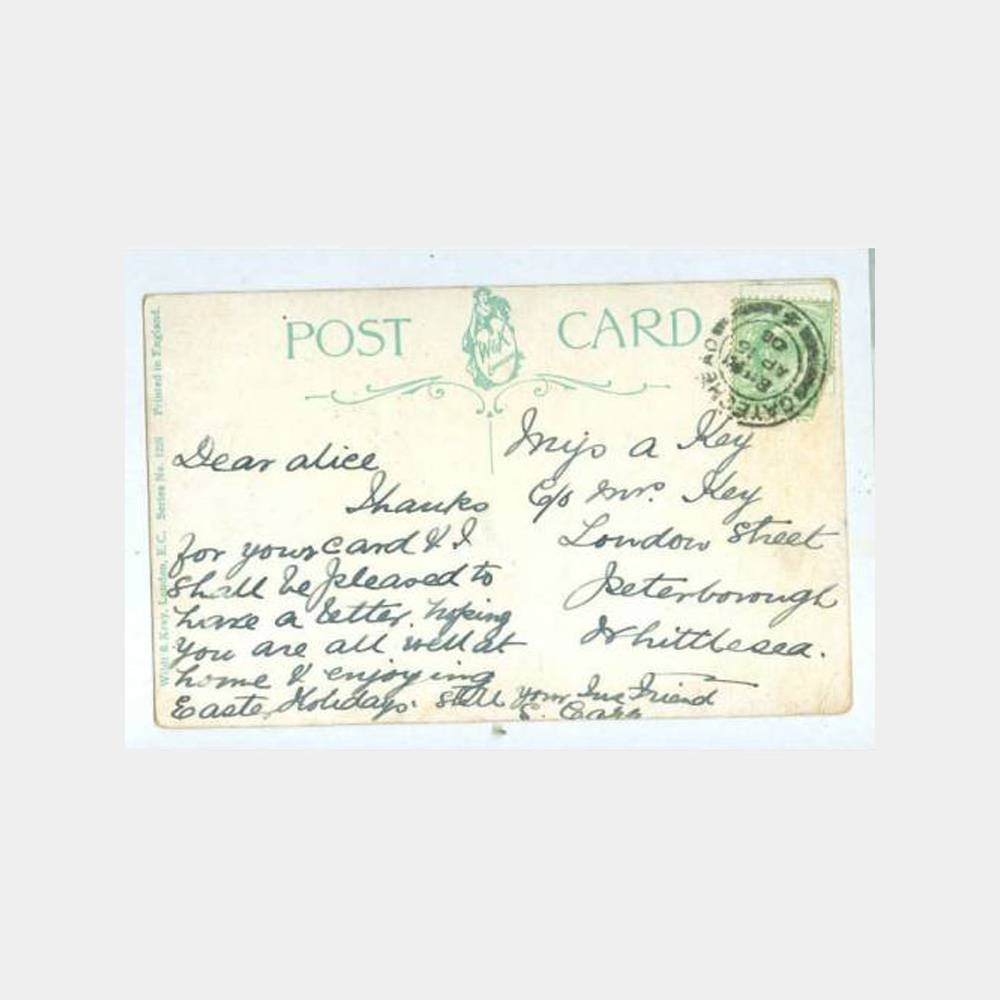 POST CARD
W&K
London
GATESHEAD
AP 16
08
Wildt & Kray, London, E.C. Series No. 1228 Printed in England.
Dear alice
Thanks
for your card & I
shall be pleased to
have a letter. hoping
you are all well at
home & enjoying
Easter Holidays. Still your True Friend
E. Carr
Miss a Key
C/o Mrs. Key
London Street
Peterborough
Whittlesea.